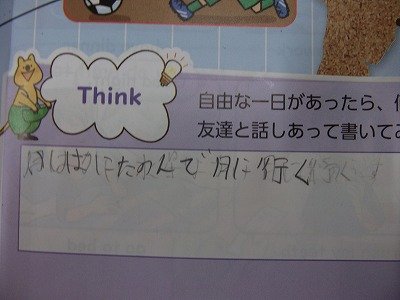 Think
自由な一日があったら、
友達と話しあって書いてみ
にたのんで月に行く